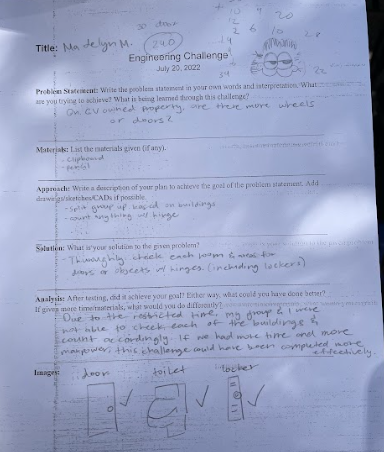 30 doors
240
Title: Madelyn M.
Engineering Challenge
July 20, 2022
Problem Statement: Write the problem statement in your own words and interpretation. What
are you trying to achieve? What is being learned through this challenge?
On CU owned property, are there more wheels
or doors?
Materials: List the materials given (if any).
- clipboard
- pencil
Approach: Write a description of your plan to achieve the goal of the problem statement. Add
drawings/sketches/CADs if possible.
- split group up based on buildings
- count anything w/ hinge
Solution: What is your solution to the given problem?
- Thoroughly check each room & area for
doors or objects w/ hinges. (including lockers)
Analysis: After testing, did it achieve your goal? Either way, what could you have done better?
If given more time/materials, what would you do differently?
Due to the restricted time, my group & I were
not able to check each of the buildings &
count accordingly. If we had more time and more
manpower, this challenge could have been completed more
effectively.
Images:
door toilet locker